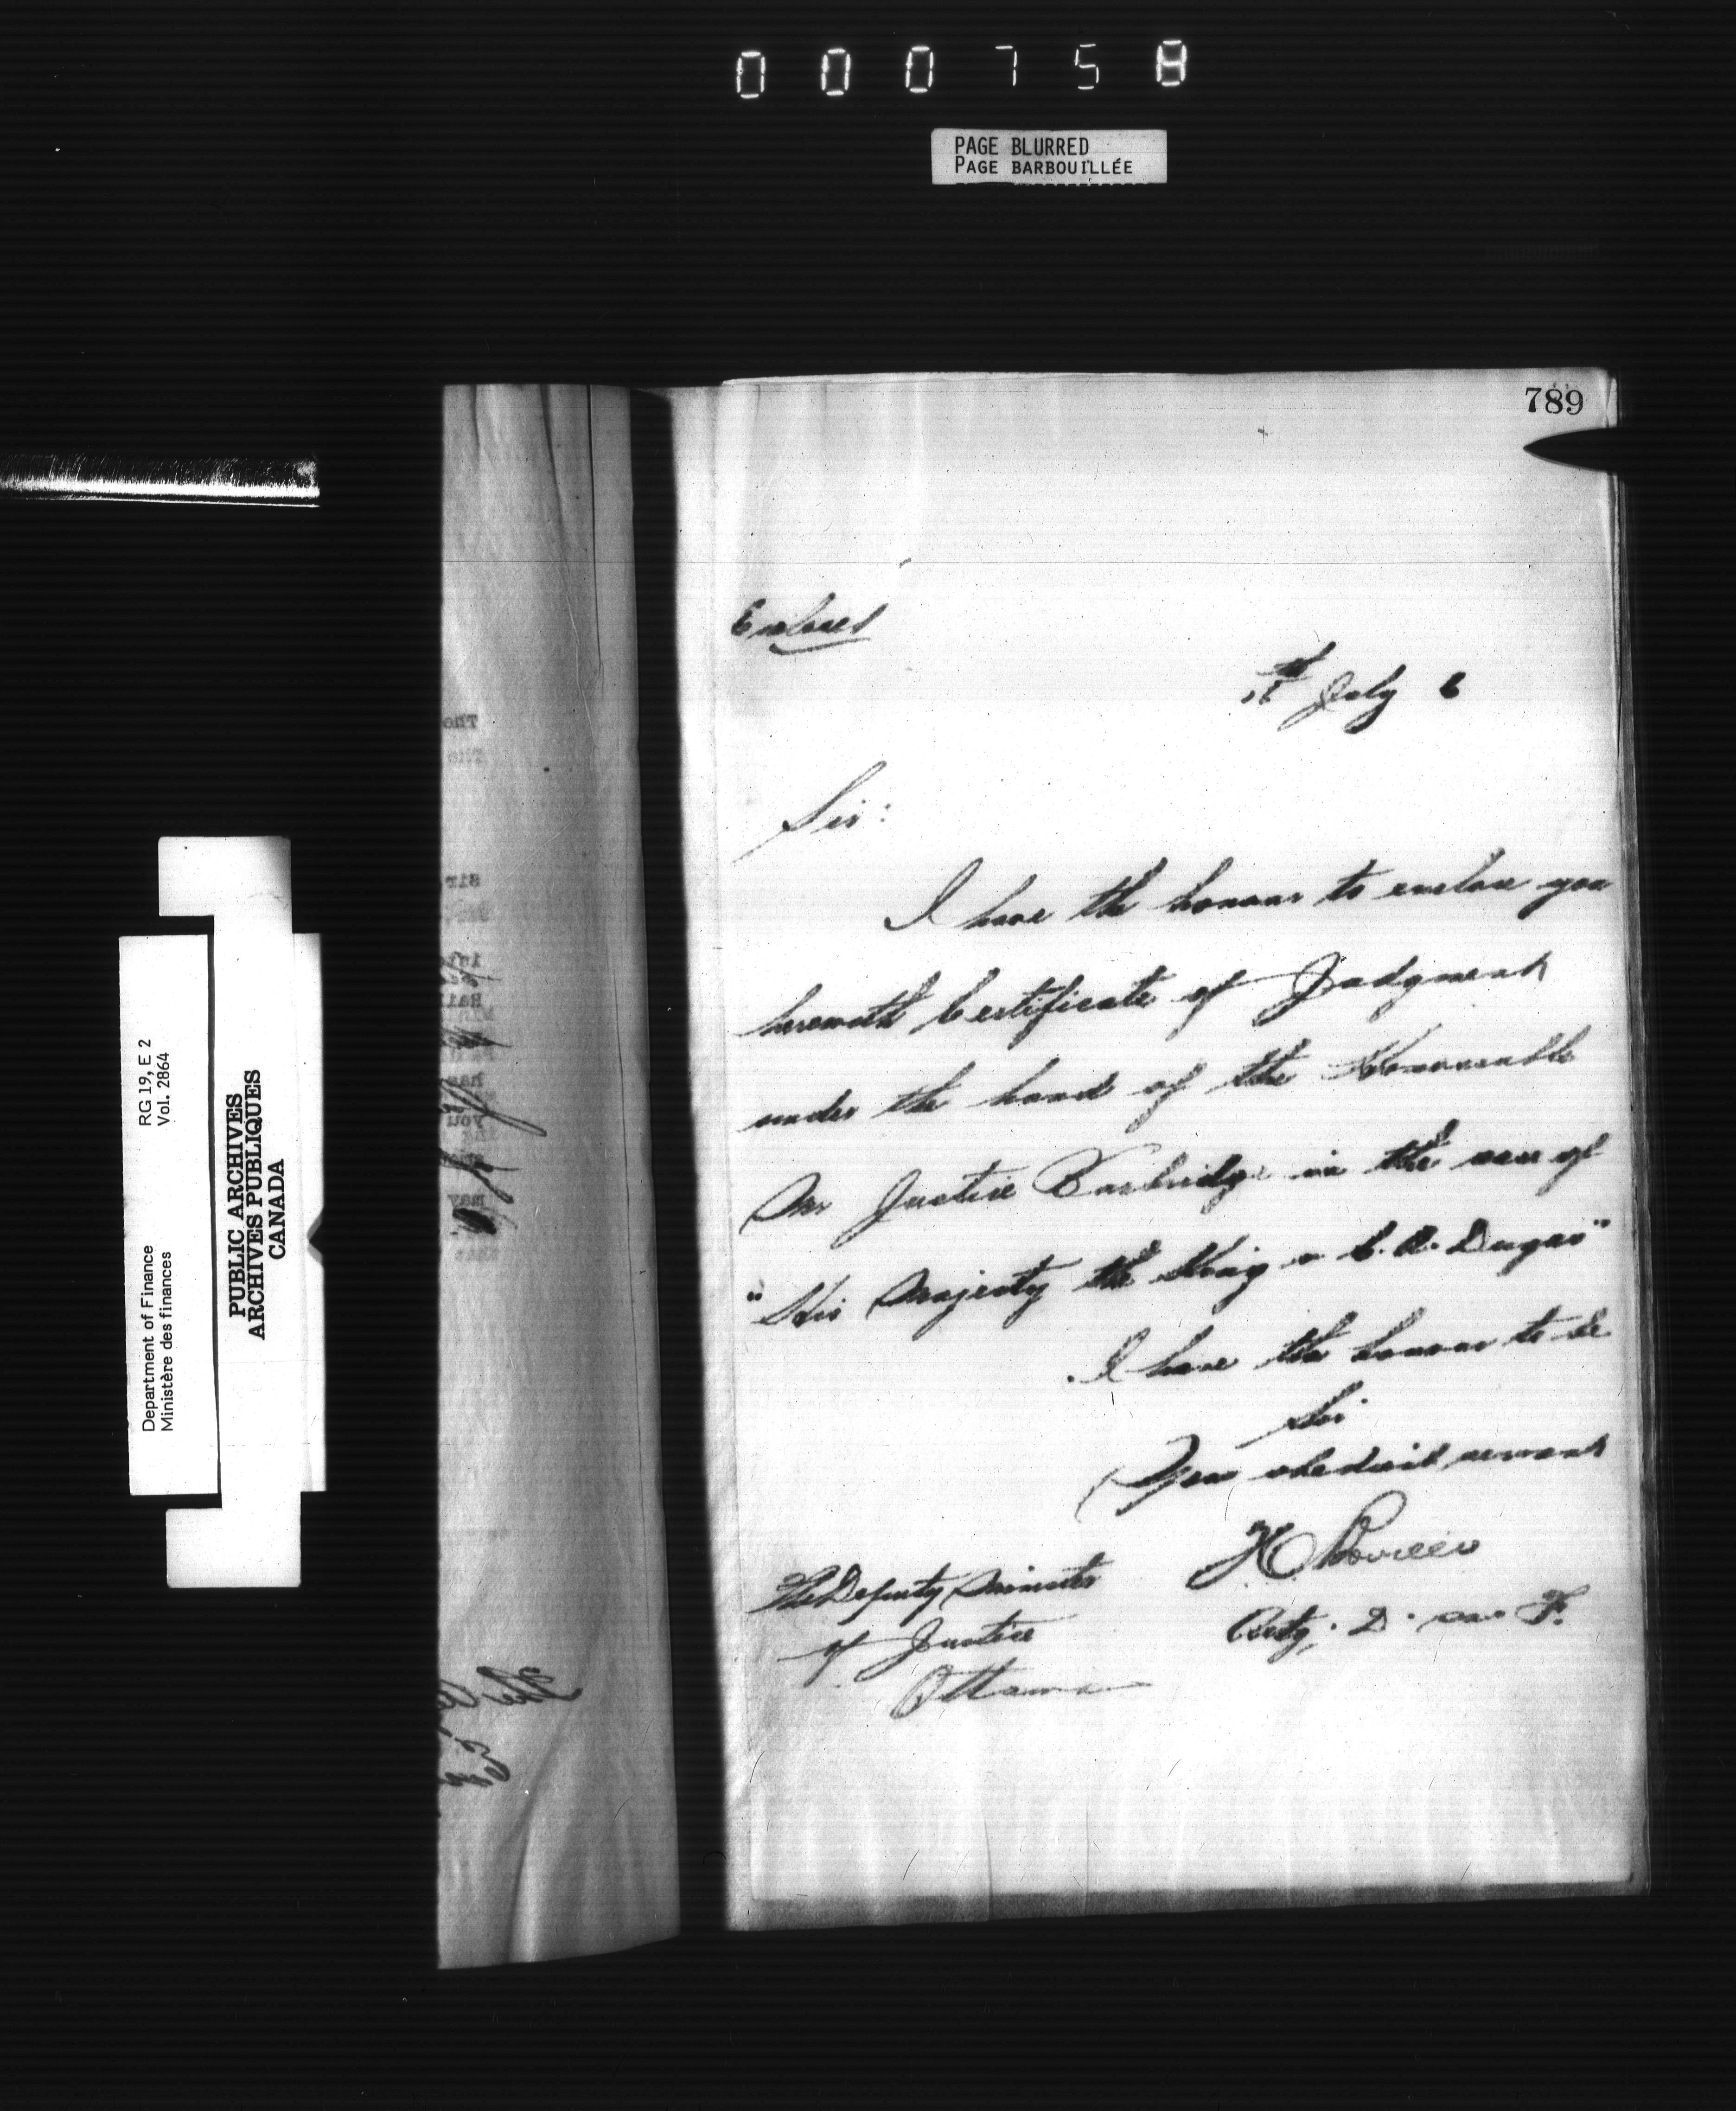 000758
PAGE BLURRED
PAGE BARBOUILLÉE
789
Enclosed
July 6
Sir:
I have the honour to enclose you
herewith Certificate of Judgment
under the hand of the Honourable
Mr Justice Burbridge in the case of
"His Majesty the King v C. A. Dugas"
I have the honour to be
Sir
Your obedient servant
The Deputy Minister
of Justice
Ottawa
Department of Finance RG 19, E 2
Ministère des finances Vol. 2864
PUBLIC ARCHIVES
ARCHIVES PUBLIQUES
CANADA